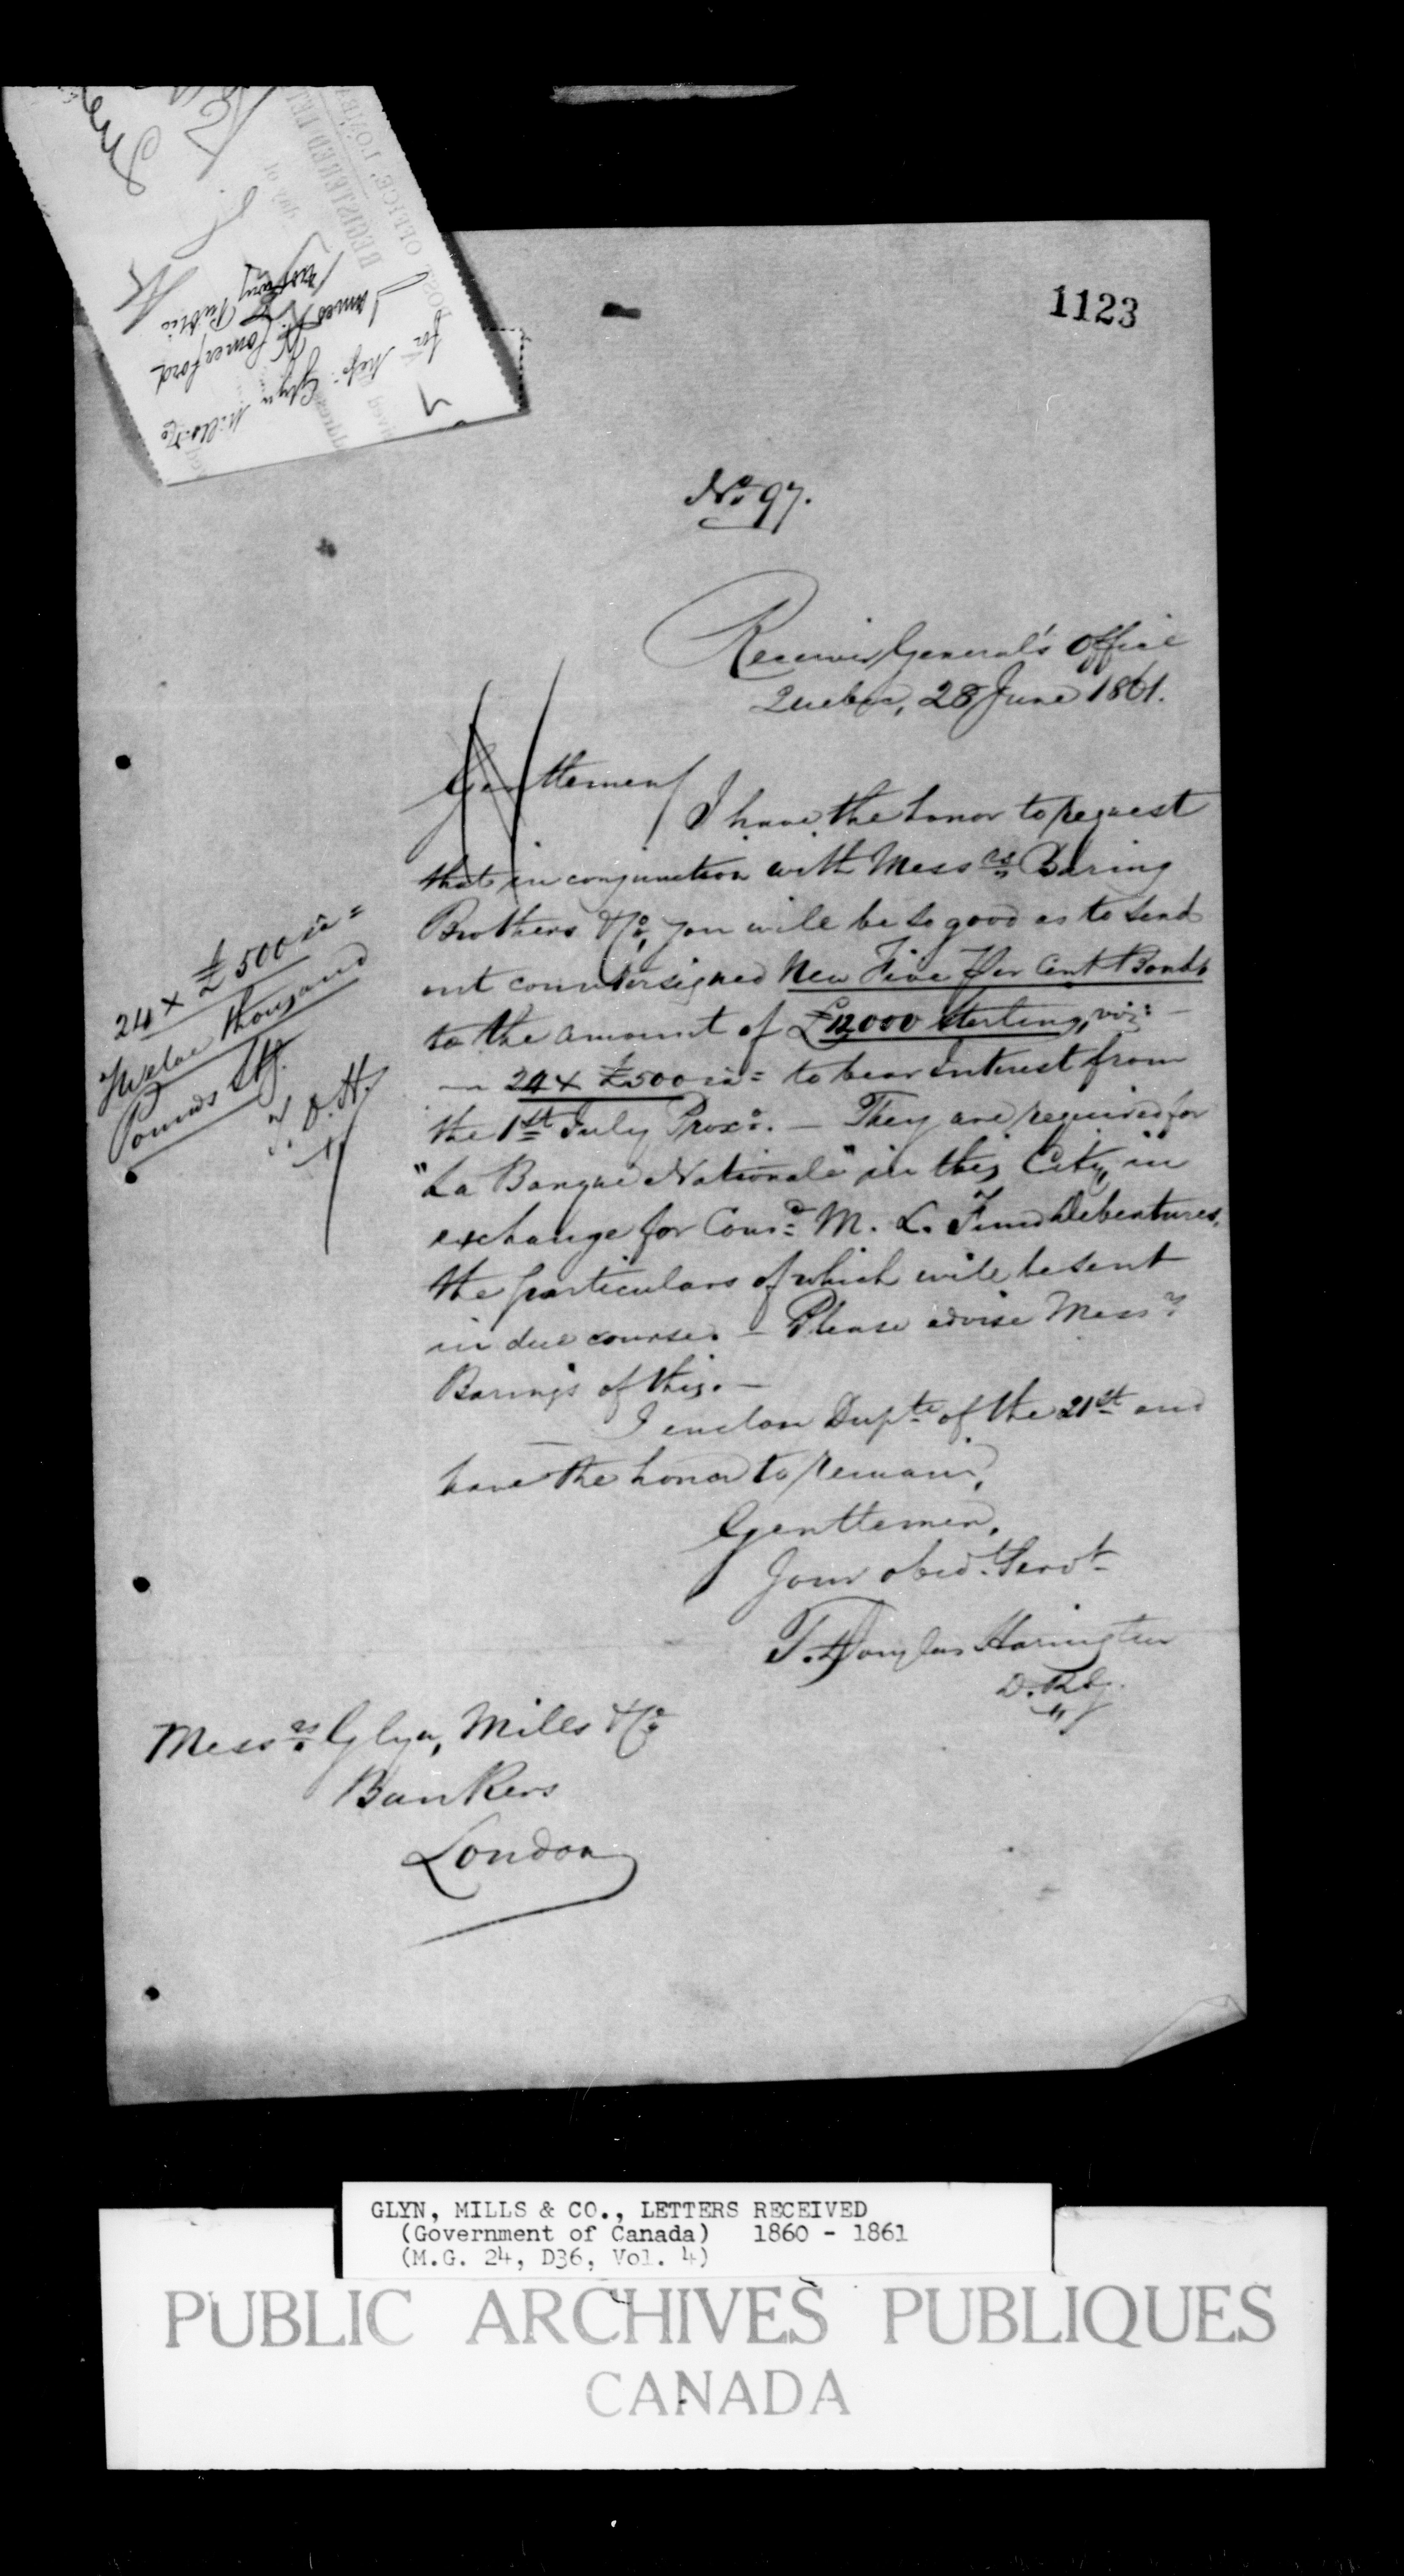 1123
POST OFFICE, LOMBA
REGISTERED LET
day of
for Messrs Glyn Mills & Co
James H. Comerford
Notary Public
No. 97.
Receiver General's Office
Quebec, 28 June 1861.
Gentlemen
I have the honor to request
that in conjunction with Messrs Baring
Brothers & Co, you will be so good as to send
out countersigned New Five Per Cent Bonds
to the amount of £12,000 sterling, viz: —
— 24 x £500 ea = to bear interest from
the 1st July Proxo. — They are required for
"La Banque Nationale" in this City, in
exchange for Cond. M. L. Fund Debentures,
the particulars of which will be sent
in due course. — Please advise Messrs
Barings of this. —
— I enclose Dupte of the 21st and
have the honor to remain,
Gentlemen,
Your obedt. Servt
T. Douglas Harington
D. R. G.
24 x £500 ea =
Twelve thousand
Pounds Stg.
T. D. H.
Messrs. Glyn, Mills & Co
Bankers
London
GLYN, MILLS & CO., LETTERS RECEIVED
(Government of Canada) 1860 - 1861
(M.G. 24, D36, Vol. 4)
PUBLIC ARCHIVES PUBLIQUES
CANADA